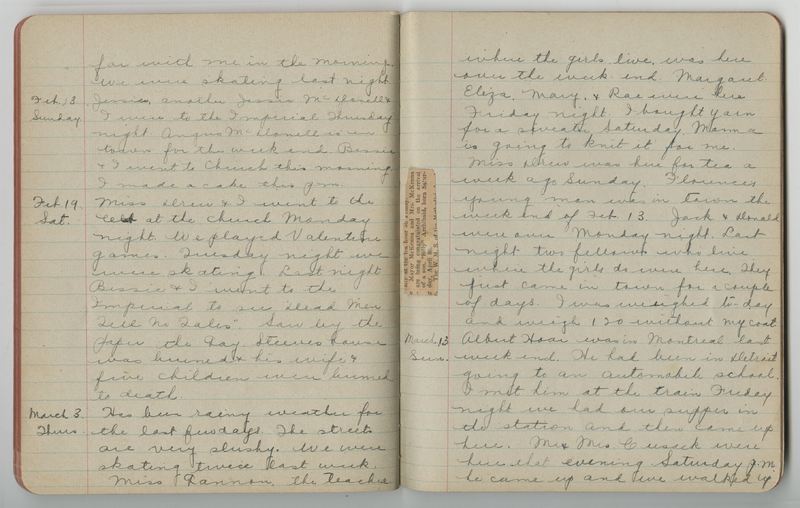 far with me in the morning.
We were skating last night
Feb. 13 Jessie, another Jessie McDonell &
Sunday I were to the Imperial Thursday
night. Angus McDonell is in
town for the week end. Bessie
& I went to Church this morning
I made a cake this p.m.
Feb 19. Miss Drew & I went to the
Sat. at the Church Monday
night. We played Valentine
games. Tuesday night we
were skating. Last night
Bessie & I went to the
Imperial to see "Dead Men
Tell No Tales". Saw by the
paper the Guy Steeves house
was burned & his wife &
five children were burned
to death.
March 3. Has been rainy weather for
Thurs. the last few days. The streets
are very slushy. We were
skating twice last week.
Miss Gannon, the teacher
where the girls live, was here
over the week end. Margaret
Eliza, Mary, & Rae were here
Friday night. I bought yarn
for a sweater Saturday. Mama
is going to knit it for me.
Miss Drew was here for tea a
week ago Sunday. Florence's
young man was in town the
week end of Feb 13. Jack & Donald
were over Monday night. Last
night two fellows who live
where the girls do were here. They
just came in town for a couple
of days. I was weighed to-day
and weigh 120 without my coat
March 13 Albert Hoar was in Montreal last
Sun. week end. He had been in Detroit
going to an automobile school.
I met him at the train Friday
night we had our supper in
the station and then came up
here. Mr & Mrs Cusack were
here that evening Saturday p.m.
he came up and we walked up
Mayor McKenna and Mrs. McKenna
are being congratulated on the arrival
of a son, Philip Archibald, born Satur-
day, April
The W. M. S.